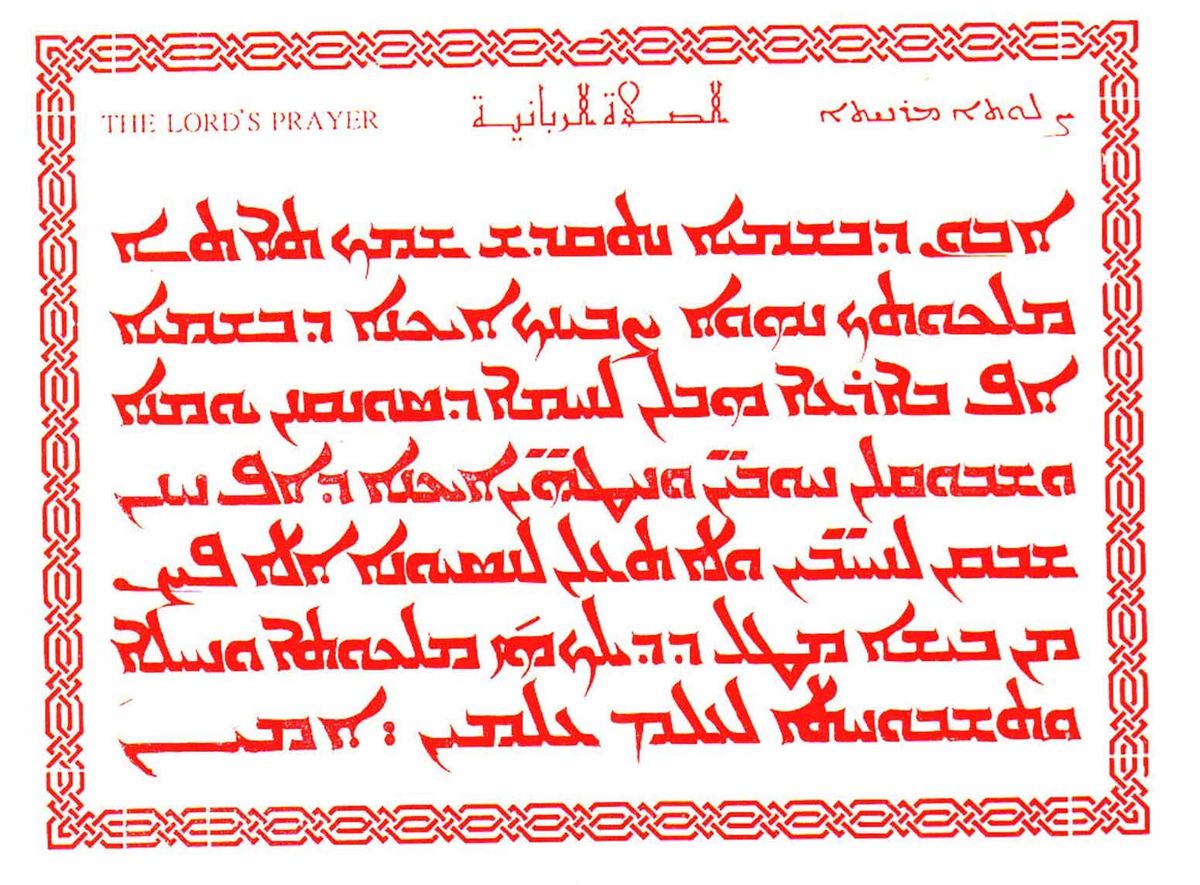 THE LORD'S PRAYER الصلاة الربانية ܨܠܘܬܐ ܡܪܢܝܬܐ
ܐܒܘܢ ܕܒܫܡܝܐ ܢܬܩܕܫ ܫܡܟ ܬܐܬܐ
ܡܠܟܘܬܟ ܢܗܘܐ ܨܒܝܢܟ ܐܝܟܢܐ ܕܒܫܡܝܐ
ܐܦ ܒܐܪܥܐ ܗܒܠܢ ܠܚܡܐ ܕܣܘܢܩܢܢ ܝܘܡܢܐ
ܘܫܒܘܩܠܢ ܚܘܒܝ̈ܢ ܘܚܛܗ̈ܝܢ ܐܝܟܢܐ ܕܐܦ ܚܢܢ
ܫܒܩܢ ܠܚܝ̈ܒܝܢ ܘܠܐ ܬܥܠܢ ܠܢܣܝܘܢܐ ܐܠܐ ܦܨܢ
ܡܢ ܒܝܫܐ ܡܛܠ ܕܕܝܠܟ ܗܝ ܡܠܟܘܬܐ ܘܚܝܠܐ
ܘܬܫܒܘܚܬܐ ܠܥܠܡ ܥܠܡܝܢ : ܐܡܝܢ